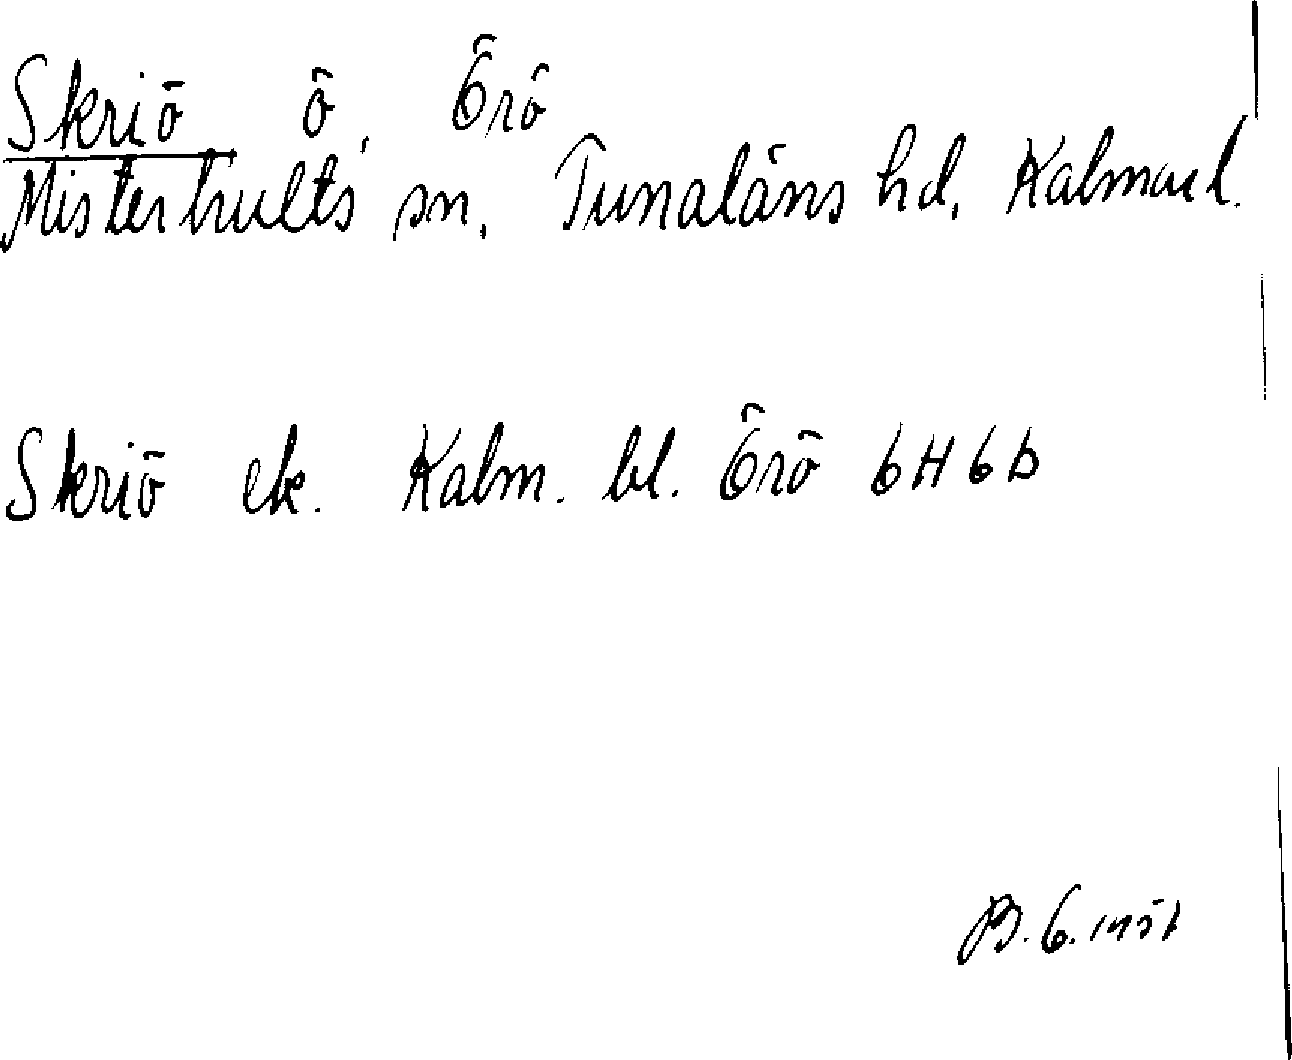 Skriö ö Örö
Misterhults sn. Tunaläns hd. Kalmar l.
Skriö ek. Kalm. bl. Örö 6H6b
B. G. 1951